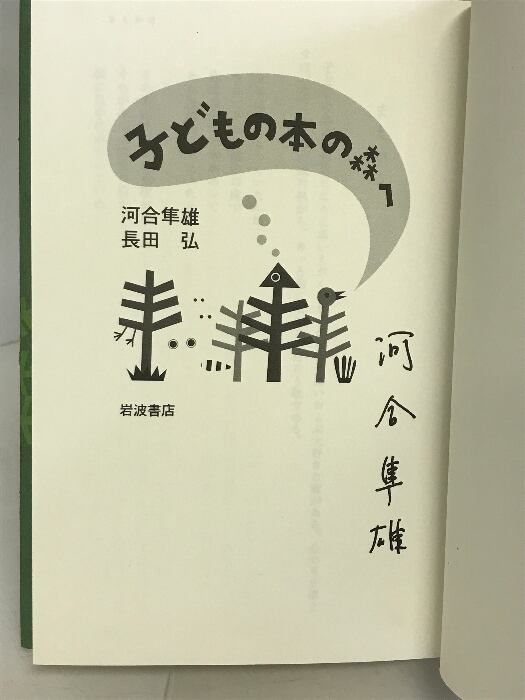 子どもの本の森へ
河合隼雄
長田 弘
岩波書店
河合隼雄